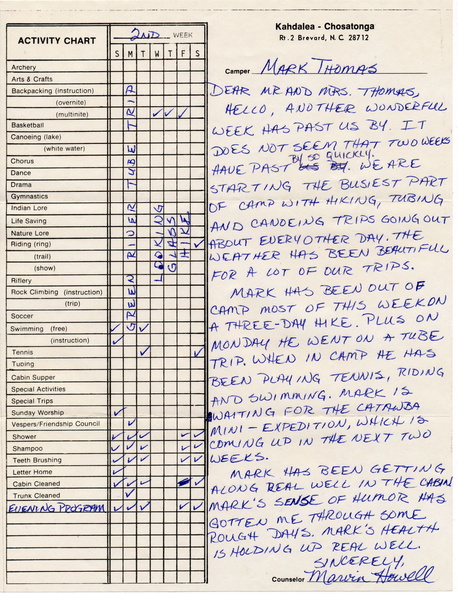 ACTIVITY CHART
2ND WEEK
S M T W T F S
Archery
Arts & Crafts
Backpacking (instruction)
(overnite)
(multinite)
Basketball
Canoeing (lake)
(white water)
Chorus
Dance
Drama
Gymnastics
Indian Lore
Life Saving
Nature Lore
Riding (ring)
(trail)
(show)
Riflery
Rock Climbing (instruction)
(trip)
Soccer
Swimming (free)
(instruction)
Tennis
Tubing
Cabin Supper
Special Activities
Special Trips
Sunday Worship
Vespers/Friendship Council
Shower
Shampoo
Teeth Brushing
Letter Home
Cabin Cleaned
Trunk Cleaned
EVENING PROGRAM
GREEN RIVER TUBE TRIP
LOOKING
GLASS
HIKE
Kahdalea - Chosatonga
Rt. 2 Brevard, N. C. 28712
Camper MARK THOMAS
DEAR MR. AND MRS. THOMAS,
HELLO, ANOTHER WONDERFUL
WEEK HAS PAST US BY. IT
DOES NOT SEEM THAT TWO WEEKS
HAVE PAST BY SO QUICKLY. WE ARE
STARTING THE BUSIEST PART
OF CAMP WITH HIKING, TUBING
AND CANOEING TRIPS GOING OUT
ABOUT EVERYOTHER DAY. THE
WEATHER HAS BEEN BEAUTIFUL
FOR A LOT OF OUR TRIPS.
MARK HAS BEEN OUT OF
CAMP MOST OF THIS WEEK ON
A THREE-DAY HIKE. PLUS ON
MONDAY HE WENT ON A TUBE
TRIP. WHEN IN CAMP HE HAS
BEEN PLAYING TENNIS, RIDING
AND SWIMMING. MARK IS
WAITING FOR THE CATAWBA
MINI-EXPEDITION, WHICH IS
COMING UP IN THE NEXT TWO
WEEKS.
MARK HAS BEEN GETTING
ALONG REAL WELL IN THE CABIN
MARK'S SENSE OF HUMOR HAS
GOTTEN ME THROUGH SOME
ROUGH DAYS. MARK'S HEALTH
IS HOLDING UP REAL WELL.
SINCERELY,
Counselor Marvin Howell